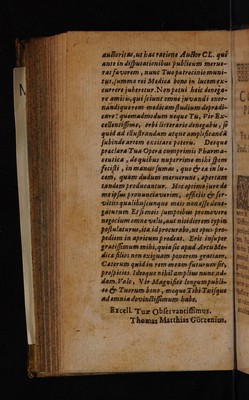 auctoritas, ut hac ratione Auctor CL. qui
ante in disputationibus publicum merue-
rat favorem, nunc Tuo patrocinio muni-
tus, summo rei Medica bono in lucem ex-
currere juberetur. Non potui huic denega-
re amico, qui scivit omne juvandi exor-
nandiq; orem medicam studium deprædi-
care: quemadmodum neque Tu, Vir Ex-
cellentissime, orbi litterario denegabis, si
quid ad illustrandam atque amplificandā
subinde artem excitare poteris. Deque
præclara Tua Opera comprimis Pharma-
ceutica, de quibus nuperrime mihi spem
fecisti, in manus sumas, quo & ea in lu-
cem, quam dudum meruerunt, apertam
tandem producantur. Hoc optimo jure de
meipsus pronunciaverim, officiis & ser-
vitiis qualibuscunque meis non esse dene-
gaturum Et si meis sumptibus promovere
negocium omne velis, aut nitidiorem typis
postulaturus, ita id procurabo, ut opus pro-
pediem in apricum prodeat. Eris insuper
gratissimum mihi, quia sic apud Artis Me-
dicæ filios non exiguam ponerem gratiam.
Cæterum quid in rem meam futurum sit,
prospicies. Ideoque nihil amplius nunc ad-
dam. Vale, Vir Magnifice longum publi-
co & Tuorum bono, meque Tibi Tuisque
ad omnia devinctissimum habe.
Excell. Tuæ Observantissimus.
Thomas Matthias Götzenius.